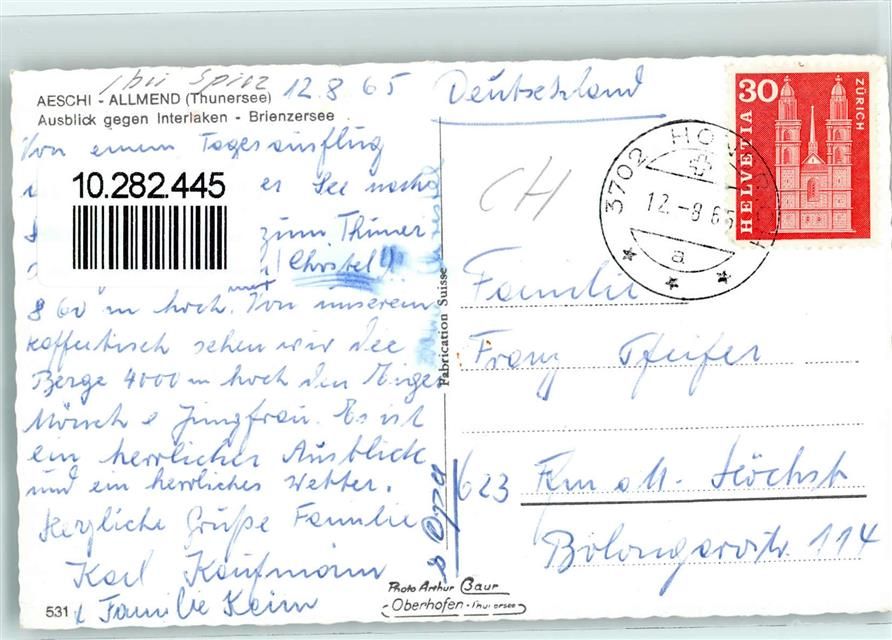 bei Spiez 12.8.65
AESCHI - ALLMEND (Thunersee)
Ausblick gegen Interlaken - Brienzersee
Von einem Tagesausflug
er See nach
10.282.445
zum Thuner
(Christel!)
860 m hoch. Von unserem
Kaffeetisch sehen wir die
Berge 4000 m hoch den Eiger
Mönch & Jungfrau. Es ist
ein herrlicher Ausblick
und ein herrliches Wetter.
Herzliche Grüße Familie
Karl Kaufmann
& Familie Keim
& Opa
531
Photo Arthur Baur
Oberhofen - Thunersee
Fabrication Suisse
Deutschland
CH
3702 HO
12.-8.65
a
30
HELVETIA
ZÜRICH
Familie
Franz Pfeifer
623 Ffm all. Höchst
Bolongarostr. 114